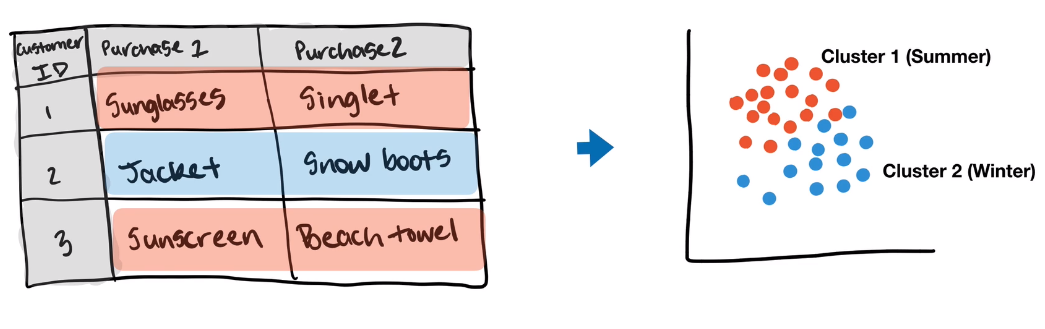 Customer ID
Purchase 1
Purchase 2
1
Sunglasses
Singlet
2
Jacket
Snow boots
3
Sunscreen
Beach towel
Cluster 1 (Summer)
Cluster 2 (Winter)